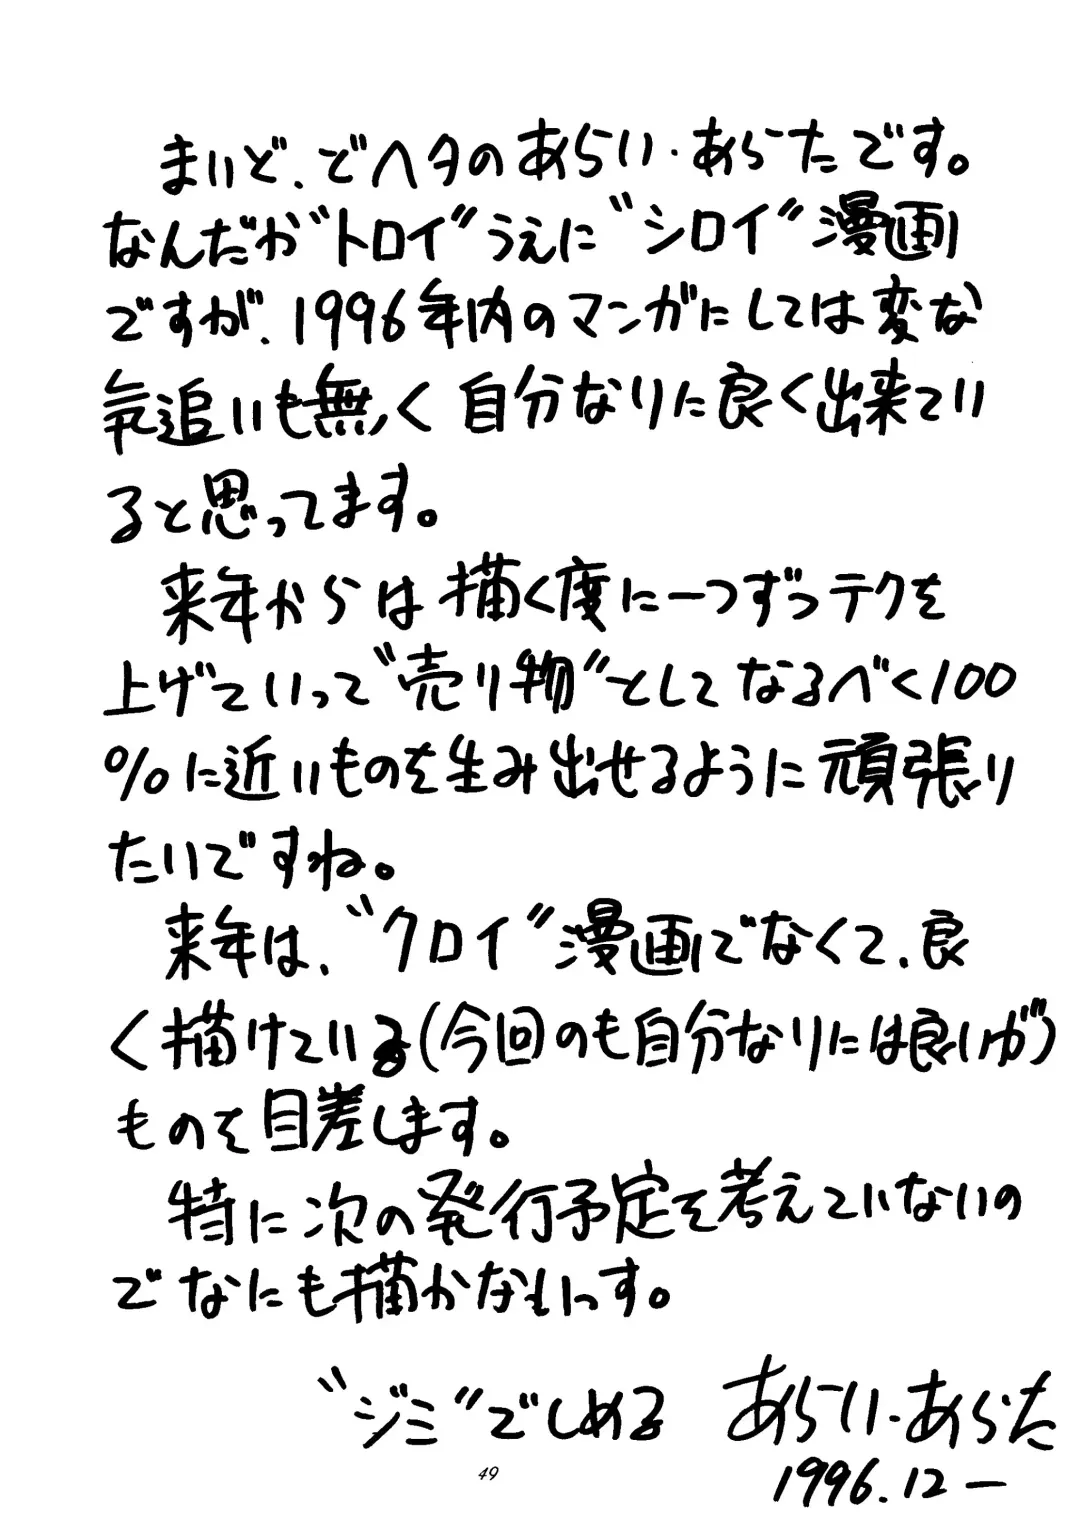 まいど、どヘタのあらい・あらたです。
なんだか“トロイ”うえに“シロイ”漫画
ですが、1996年内のマンガにしては変な
気追いも無く自分なりに良く出来てい
ると思ってます。
来年からは描く度に一つずつテクを
上げていって“売り物”としてなるべく100
%に近いものを生み出せるように頑張り
たいですね。
来年は、“クロイ”漫画でなくて、良
く描けている(今回のも自分なりには良いが)
ものを目差します。
特に次の発行予定を考えていないの
でなにも描かないっす。
“ジミ”でしめる あらい・あらた
1996.12―
49